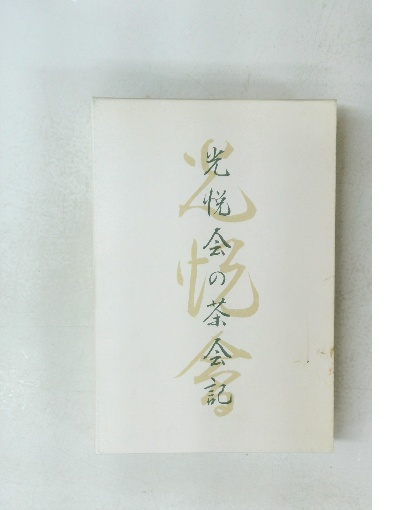 光悦会の茶会記
光悦會